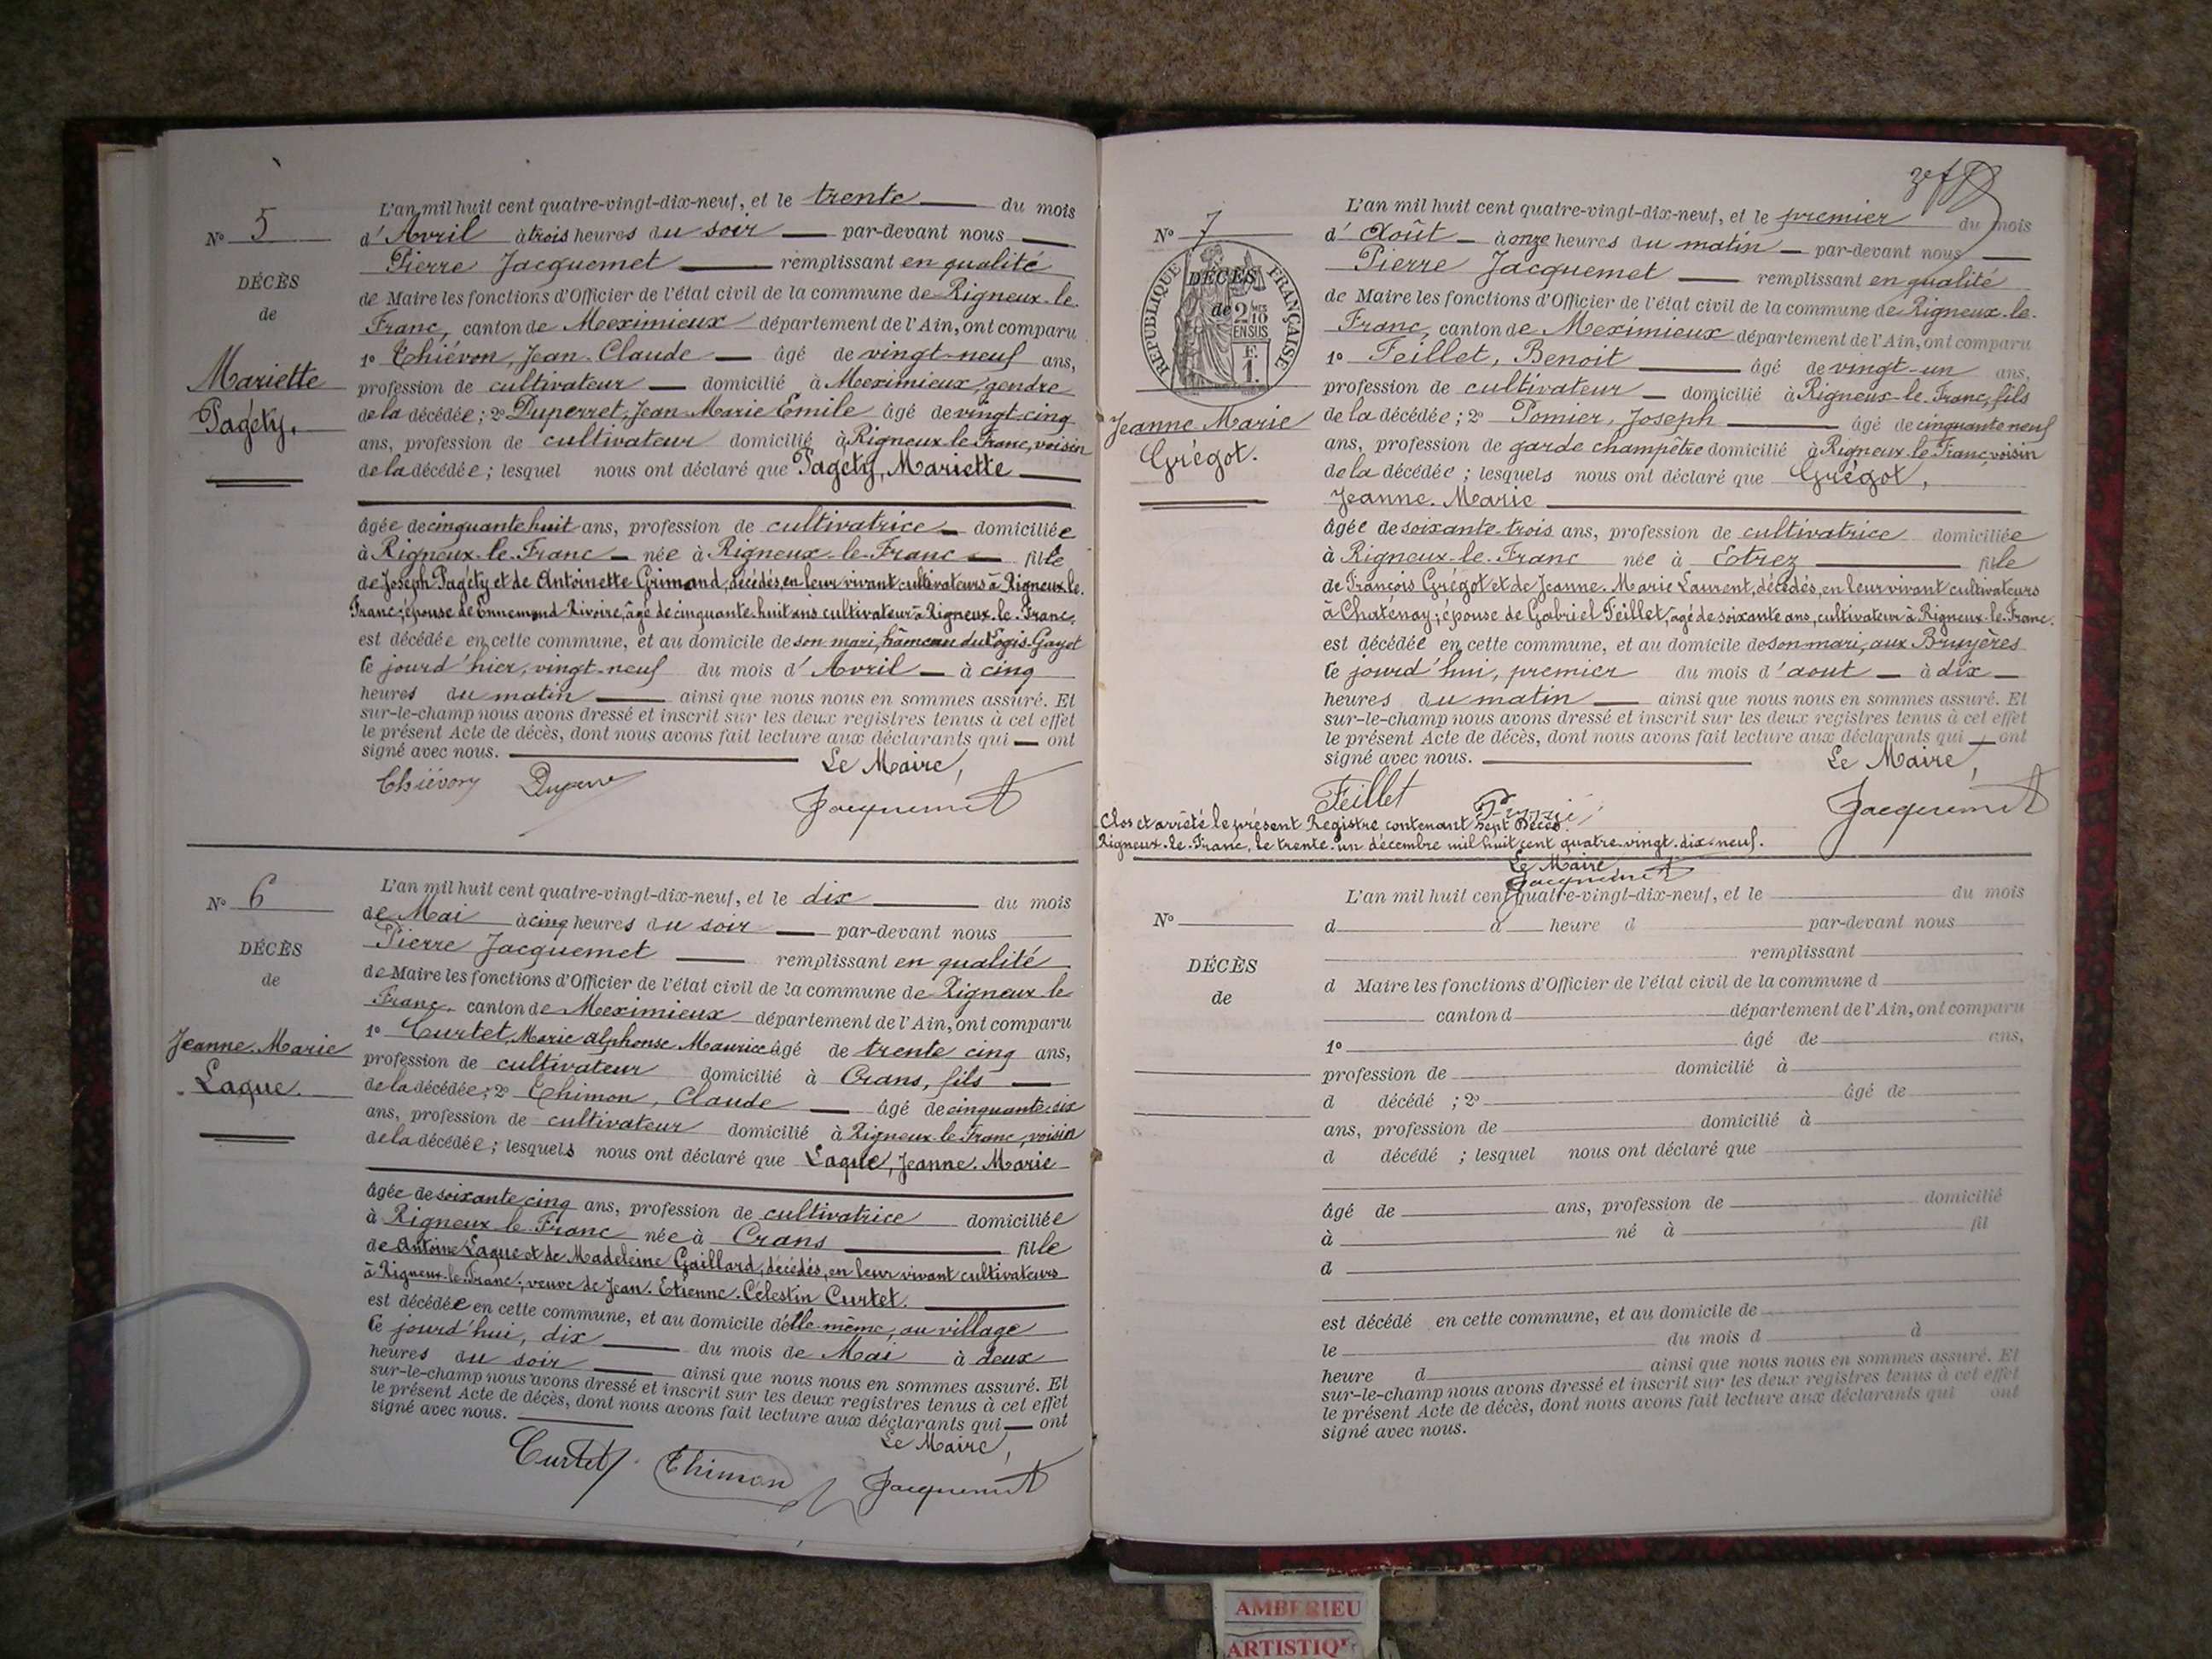 L'an mil huit cent quatre-vingt-dix-neuf, et le trente du mois
N° 5
d'Avril à trois heures du soir par-devant nous
Pierre Jacquemet remplissant en qualité
DÉCÈS
de Maire les fonctions d'Officier de l'état civil de la commune de Rigneux-le-
de
Franc, canton de Meximieux département de l'Ain, ont comparu
1° Thiévon, Jean-Claude âgé de vingt-neuf ans,
Mariette
profession de cultivateur domicilié à Meximieux, gendre
Pagéty,
de la décédée; 2° Duperret, Jean-Marie Emile âgé de vingt-cinq
ans, profession de cultivateur domicilié à Rigneux-le-Franc, voisin
de la décédée; lesquel nous ont déclaré que Pagéty, Mariette
âgée de cinquante huit ans, profession de cultivatrice domiciliée
à Rigneux-le-Franc née à Rigneux-le-Franc fille
de Joseph Pagéty et de Antoinette Grimand, décédés, en leur vivant cultivateurs à Rigneux-le-
Franc; épouse de Ennemond Rivoire, âgé de cinquante-huit ans cultivateur à Rigneux-le-Franc,
est décédée en cette commune, et au domicile de son mari, hameau du Logis-Gayot
le jourd'hier, vingt-neuf du mois d'Avril à cinq
heures du matin ainsi que nous nous en sommes assuré. Et
sur-le-champ nous avons dressé et inscrit sur les deux registres tenus à cet effet
le présent Acte de décès, dont nous avons fait lecture aux déclarants qui ont
signé avec nous. Le Maire,
Thiévon Jacquemet
L'an mil huit cent quatre-vingt-dix-neuf, et le dix du mois
N° 6
de Mai à cinq heures du soir par-devant nous
Pierre Jacquemet remplissant en qualité
DÉCÈS
de Maire les fonctions d'Officier de l'état civil de la commune de Rigneux-le
de
Franc, canton de Meximieux département de l'Ain, ont comparu
1° Curtet, Marie Alphonse Maurice âgé de trente cinq ans,
Jeanne Marie
profession de cultivateur domicilié à Crans, fils
Laque.
de la décédée; 2° Thimon, Claude âgé de cinquante six
ans, profession de cultivateur domicilié à Rigneux-le-Franc, voisin
de la décédée; lesquels nous ont déclaré que Laque, Jeanne-Marie
âgée de soixante cinq ans, profession de cultivatrice domiciliée
à Rigneux-le-Franc née à Crans fille
de Antoine Laque et de Madeleine Gaillard, décédés, en leur vivant cultivateurs
à Rigneux-le-Franc; veuve de Jean-Etienne-Célestin Curtet.
est décédée en cette commune, et au domicile d'elle-même, au village
le jourd'hui, dix du mois de Mai à deux
heures du soir ainsi que nous nous en sommes assuré. Et
sur-le-champ nous avons dressé et inscrit sur les deux registres tenus à cet effet
le présent Acte de décès, dont nous avons fait lecture aux déclarants qui ont
signé avec nous.
Le Maire,
Curtet Thimon Jacquemet
L'an mil huit cent quatre-vingt-dix-neuf, et le premier du mois
N° 7
d'Août à onze heures du matin par-devant nous
Pierre Jacquemet remplissant en qualité
RÉPUBLIQUE FRANÇAISE
DÉCÈS
de Maire les fonctions d'Officier de l'état civil de la commune de Rigneux-le-
de
2/10 EN SUS
F. 1.
Franc, canton de Meximieux département de l'Ain, ont comparu
1° Feillet, Benoit âgé de vingt-un ans,
profession de cultivateur domicilié à Rigneux-le-Franc, fils
Jeanne Marie
de la décédée; 2° Pomier, Joseph âgé de cinquante neuf
Grégot.
ans, profession de garde champêtre domicilié à Rigneux-le-Franc voisin
de la décédée; lesquels nous ont déclaré que Grégot,
Jeanne-Marie
âgée de soixante-trois ans, profession de cultivatrice domiciliée
à Rigneux-le-Franc née à Etrez fille
de François Grégot et de Jeanne-Marie Laurent, décédés, en leur vivant cultivateurs
à Chatenay; épouse de Gabriel Feillet, âgé de soixante ans, cultivateur à Rigneux-le-Franc.
est décédée en cette commune, et au domicile de son mari, aux Bruyères
le jourd'hui, premier du mois d'aout à dix
heures du matin ainsi que nous nous en sommes assuré. Et
sur-le-champ nous avons dressé et inscrit sur les deux registres tenus à cet effet
le présent Acte de décès, dont nous avons fait lecture aux déclarants qui ont
signé avec nous. Le Maire,
Feillet Jacquemet
Clos et arrêté le présent Registre contenant sept Décès.
Rigneux-le-Franc, le trente-un décembre mil huit cent quatre-vingt-dix-neuf.
Le Maire
Jacquemet
L'an mil huit cent quatre-vingt-dix-neuf, et le du mois
N°
d à heure d par-devant nous
remplissant
DÉCÈS
d Maire les fonctions d'Officier de l'état civil de la commune d
de
canton d département de l'Ain, ont comparu
1° âgé de ans,
profession de domicilié à
d décédé ; 2° âgé de
ans, profession de domicilié à
d décédé ; lesquel nous ont déclaré que
âgé de ans, profession de domicilié
à né à fil
d
est décédé en cette commune, et au domicile de
le du mois d à
heure d ainsi que nous nous en sommes assuré. Et
sur-le-champ nous avons dressé et inscrit sur les deux registres tenus à cet effet
le présent Acte de décès, dont nous avons fait lecture aux déclarants qui ont
signé avec nous.
AMBERIEU
ARTISTIQU